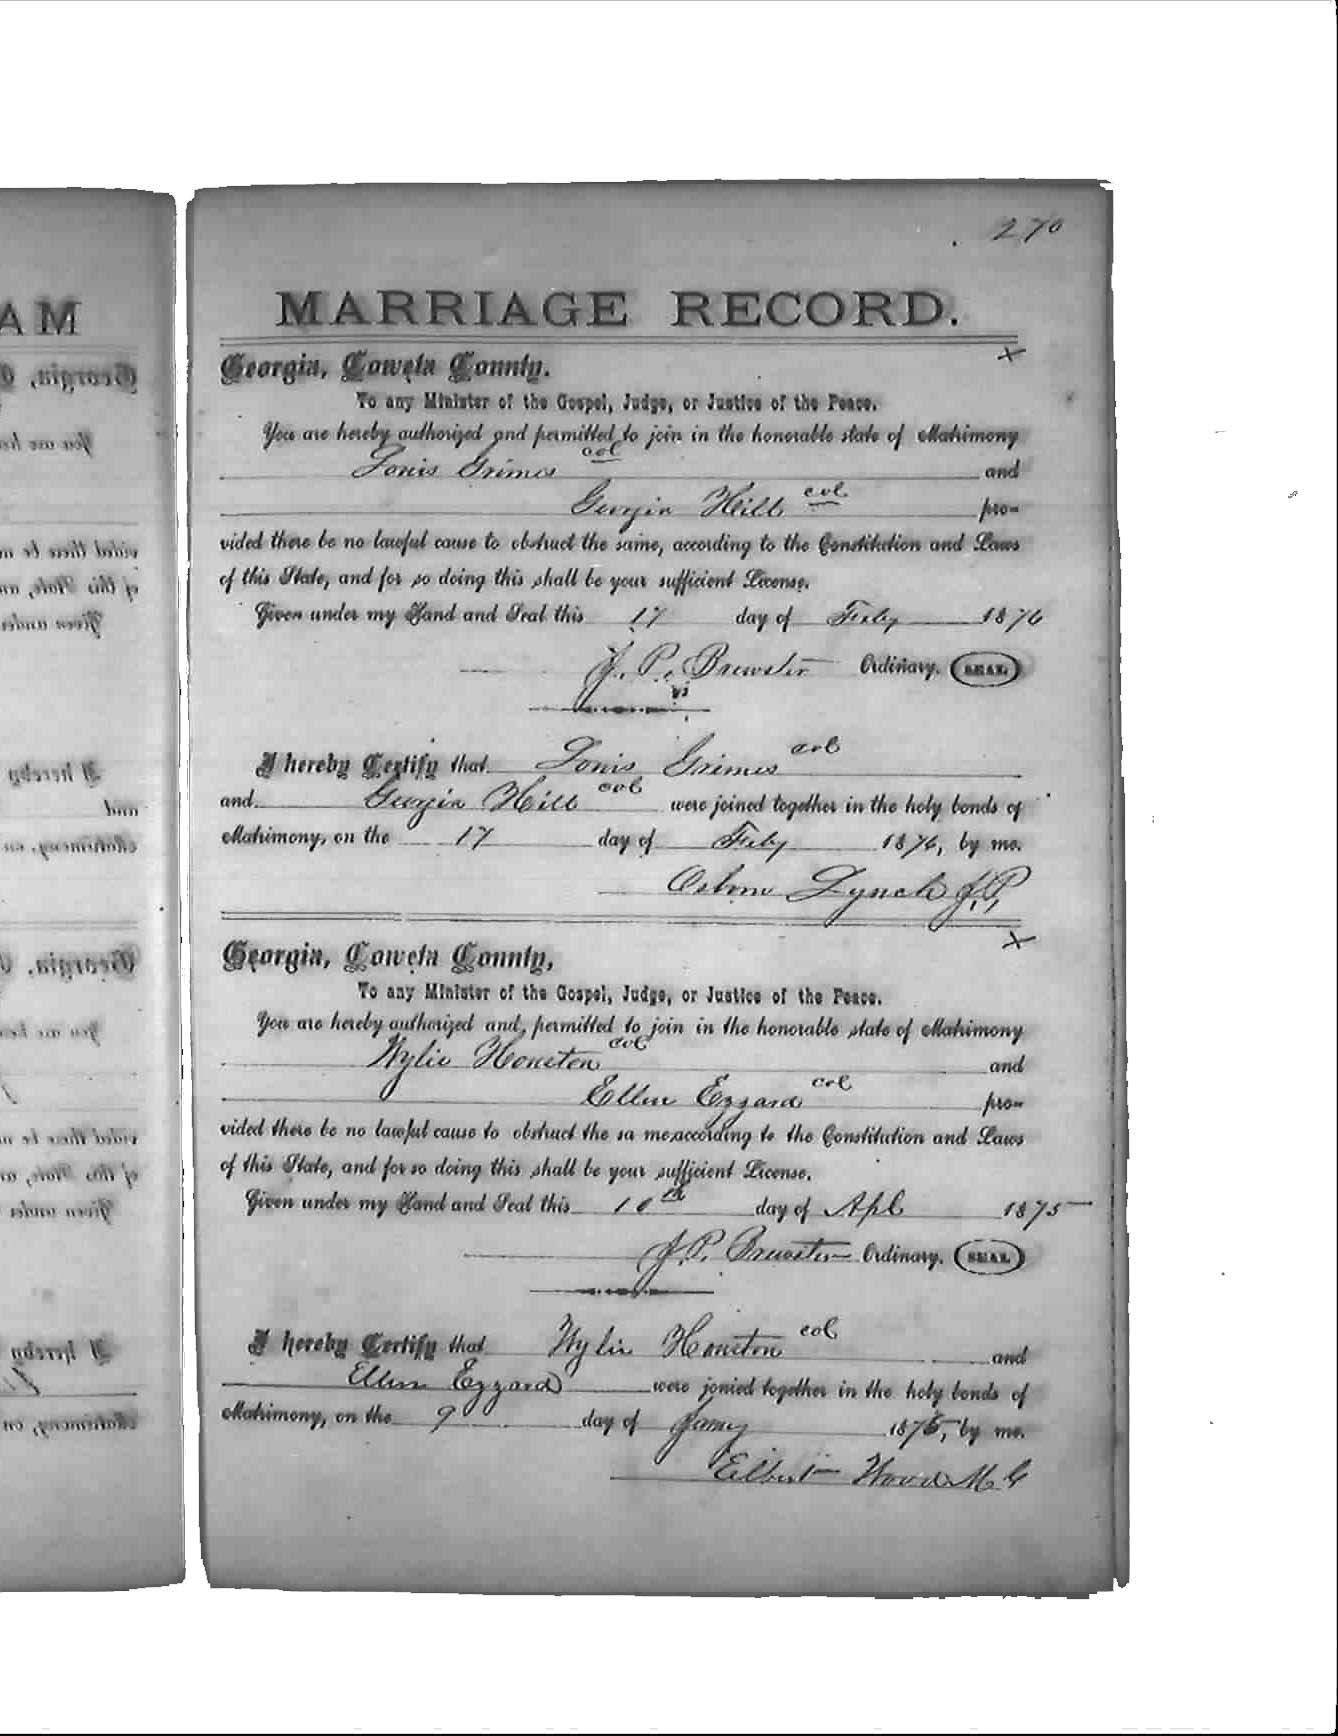 270
MARRIAGE RECORD.
Georgia, Coweta County.
To any Minister of the Gospel, Judge, or Justice of the Peace.
You are hereby authorized and permitted to join in the honorable state of Matrimony
Grimes col and
Georgia Hill col pro-
vided there be no lawful cause to obstruct the same, according to the Constitution and Laws
of this State, and for so doing this shall be your sufficient License.
Given under my Hand and Seal this 17 day of Feby 1876
J. P. Brewster Ordinary. SEAL
I hereby Certify that Grimes col
and Georgia Hill col were joined together in the holy bonds of
Matrimony, on the 17 day of Feby 1876, by me.
Lynch J.P.
Georgia, Coweta County,
To any Minister of the Gospel, Judge, or Justice of the Peace.
You are hereby authorized and permitted to join in the honorable state of Matrimony
Wylie Houston col and
Ellen Ezzard col pro-
vided there be no lawful cause to obstruct the sa me,according to the Constitution and Laws
of this State, and for so doing this shall be your sufficient License.
Given under my Hand and Seal this 10th day of Apl 1875
J. P. Brewster Ordinary. SEAL
I hereby Certify that Wylie Houston col and
Ellen Ezzard were jonied together in the holy bonds of
Matrimony, on the 9 day of 1875, by me.
Elbert Wood M G